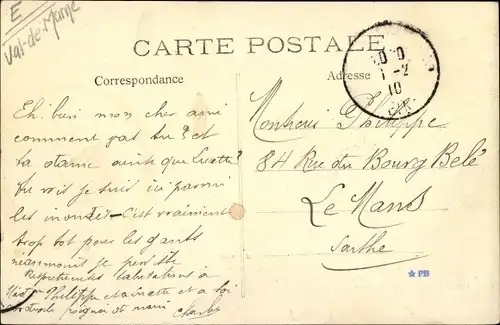 E
Val-de-Marne
CARTE POSTALE
Correspondance
Adresse
1-2
10
Eh bien mon cher ami
comment vas tu ? et
ta dame ainsi que Lucette ?
Tu vois je suis ici parmi
les inondés - C'est vraiment
trop bot pour les gants
néanmoins je persiste
Respectueuses salutations à
Mad Philippe et a toi
poignée de main Charles
Monsieur Philippe
84 Rue du Bourg Belé
Le Mans
Sarthe
PB